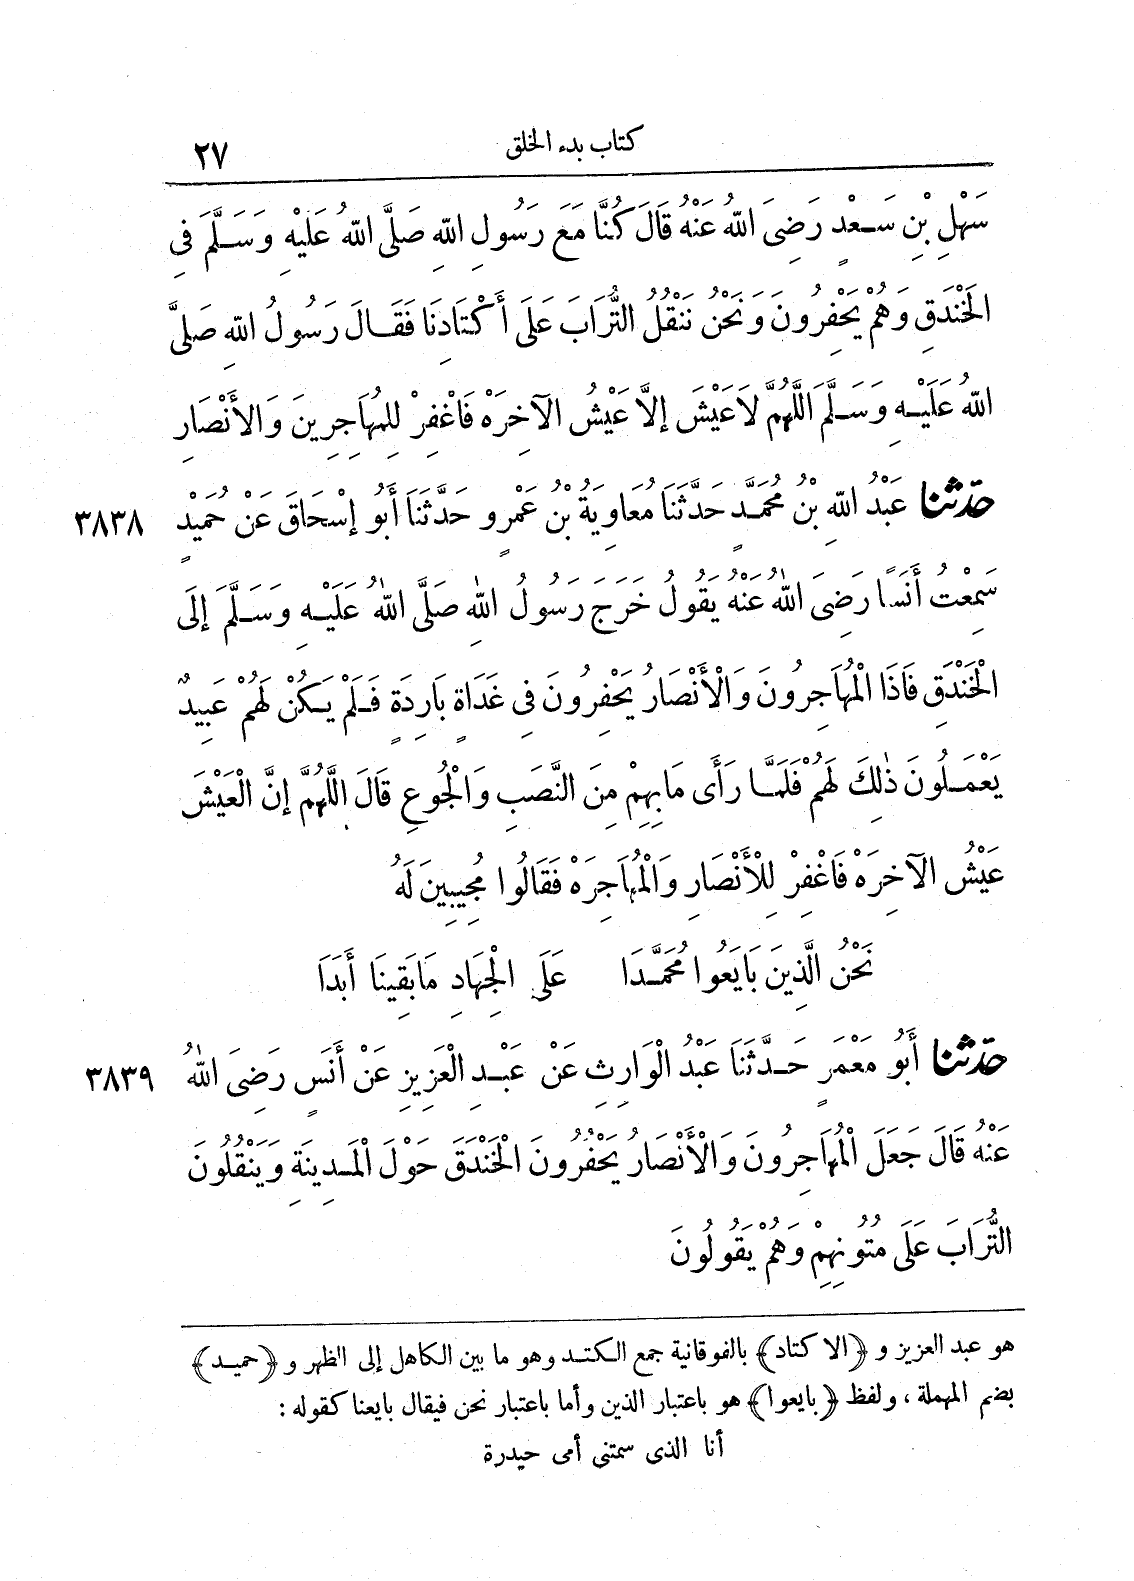 كتاب بدء الخلق ٢٧
سَهْلِ بْنِ سَعْدٍ رَضِيَ اللهُ عَنْهُ قَالَ كُنَّا مَعَ رَسُولِ اللهِ صَلَّى اللهُ عَلَيْهِ وَسَلَّمَ فِى
الخَنْدَقِ وَهُمْ يَحْفِرُونَ وَنَحْنُ نَنْقُلُ التُّرَابَ عَلَى أَكْتَادِنَا فَقَالَ رَسُولُ اللهِ صَلَّى
اللهُ عَلَيْهِ وَسَلَّمَ اللَّهُمَّ لَاعَيْشَ إلَّا عَيْشُ الآخِرَهْ فَاغْفِرْ لِلمُهَاجِرِينَ وَالأَنْصَارِ
حدثنا عَبْدُ اللهِ بْنُ مُحَمَّدٍ حَدَّثَنَا مُعَاوِيَةُ بْنُ عَمْرٍو حَدَّثَنَا أَبُو إسْحَاقَ عَنْ حُمَيْدٍ ٣٨٣٨
سَمِعْتُ أَنَسًا رَضِىَ اللهُ عَنْهُ يَقُولُ خَرَجَ رَسُولُ اللهِ صَلَّى اللهُ عَلَيْهِ وَسَلَّمَ إلَى
الْخَنْدَقِ فَاذَا الْمُهَاجِرُونَ وَالْأَنْصَارُ يَحْفِرُونَ فِى غَدَاةٍ بَارِدَةٍ فَلَمْ يَكُنْ لَهُمْ عَبِيدٌ
يَعْمَلُونَ ذٰلِكَ لَهُمْ فَلَمَّا رَأَى مَابِهِمْ مِنَ النَّصَبِ وَالْجُوعِ قَالَ اللَّهُمَّ إنَّ الْعَيْشَ
عَيْشُ الآخِرَهْ فَاغْفِرْ لِلْأَنْصَارِ وَالْمُهَاجِرَهْ فَقَالُوا مُجِيبِينَ لَهُ
نَحْنُ الَّذِينَ بَايَعُوا مُحَمَّدَا عَلَى الْجِهَادِ مَابَقِينَا أَبَدَا
حدثنا أَبُو مَعْمَرٍ حَدَّثَنَا عَبْدُ الْوَارِثِ عَنْ عَبْدِ الْعَزِيزِ عَنْ أَنَسٍ رَضِىَ اللهُ ٣٨٣٩
عَنْهُ قَالَ جَعَلَ الْمُهَاجِرُونَ وَالْأَنْصَارُ يَحْفُرُونَ الْخَنْدَقَ حَوْلَ الْمَدِينَةِ وَيَنْقُلُونَ
التُّرَابَ عَلَى مُتُونِهِمْ وَهُمْ يَقُولُونَ
هو عبد العزيز و ﴿الاكتاد﴾ بالفوقانية جمع الكتد وهو ما بين الكاهل إلى الظهر و ﴿حميد﴾
بضم المهملة ، ولفظ ﴿بايعوا﴾ هو باعتبار الذين وأما باعتبار نحن فيقال بايعنا كقوله :
أنا الذى سمتنى أمى حيدرة